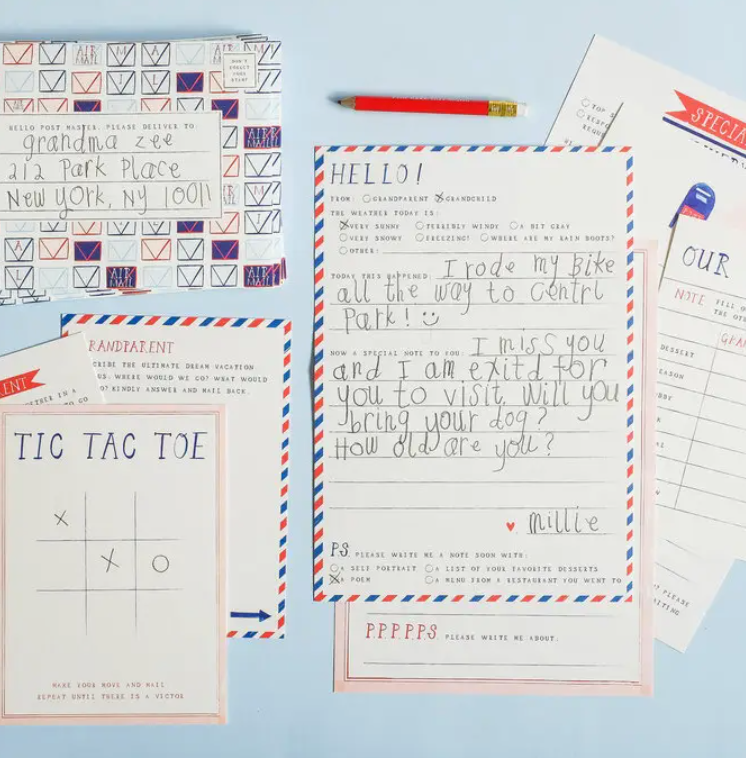 AIR MAIL
M A
I L
DON'T FORGET YOUR STAMP
HELLO POST MASTER, PLEASE DELIVER TO:
grandma zee
212 Park Place
New York, NY 10011
AIR MAIL
AIR MAIL
AIR MAIL
HELLO!
FROM: GRANDPARENT GRANDCHILD
THE WEATHER TODAY IS:
VERY SUNNY TERRIBLY WINDY A BIT GRAY
VERY SNOWY FREEZING! WHERE ARE MY RAIN BOOTS?
OTHER:
TODAY THIS HAPPENED: I rode my Bike
all the way to Centrl
Park!
NOW A SPECIAL NOTE TO YOU: I miss you
and I am exitd for
you to visit. Will you
bring your dog?
How old are you?
millie
P.S. PLEASE WRITE ME A NOTE SOON WITH:
A SELF PORTRAIT A LIST OF YOUR FAVORITE DESSERTS
A POEM A MENU FROM A RESTAURANT YOU WENT TO
P.P.P.P.P.S PLEASE WRITE ME ABOUT:
TOP S
SPECIA
OUR
NOTE FILL O
THE OT
GRA
DESSERT
EASON
BBY
N
T PLEASE
AITING
RANDPARENT
CRIBE THE ULTIMATE DREAM VACATION
US. WHERE WOULD WE GO? WHAT WOULD
O? KINDLY ANSWER AND MAIL BACK.
ENT
ETHER IN A
TO GO
TIC TAC TOE
X
X O
MAKE YOUR MOVE AND MAIL
REPEAT UNTIL THERE IS A VICTOR